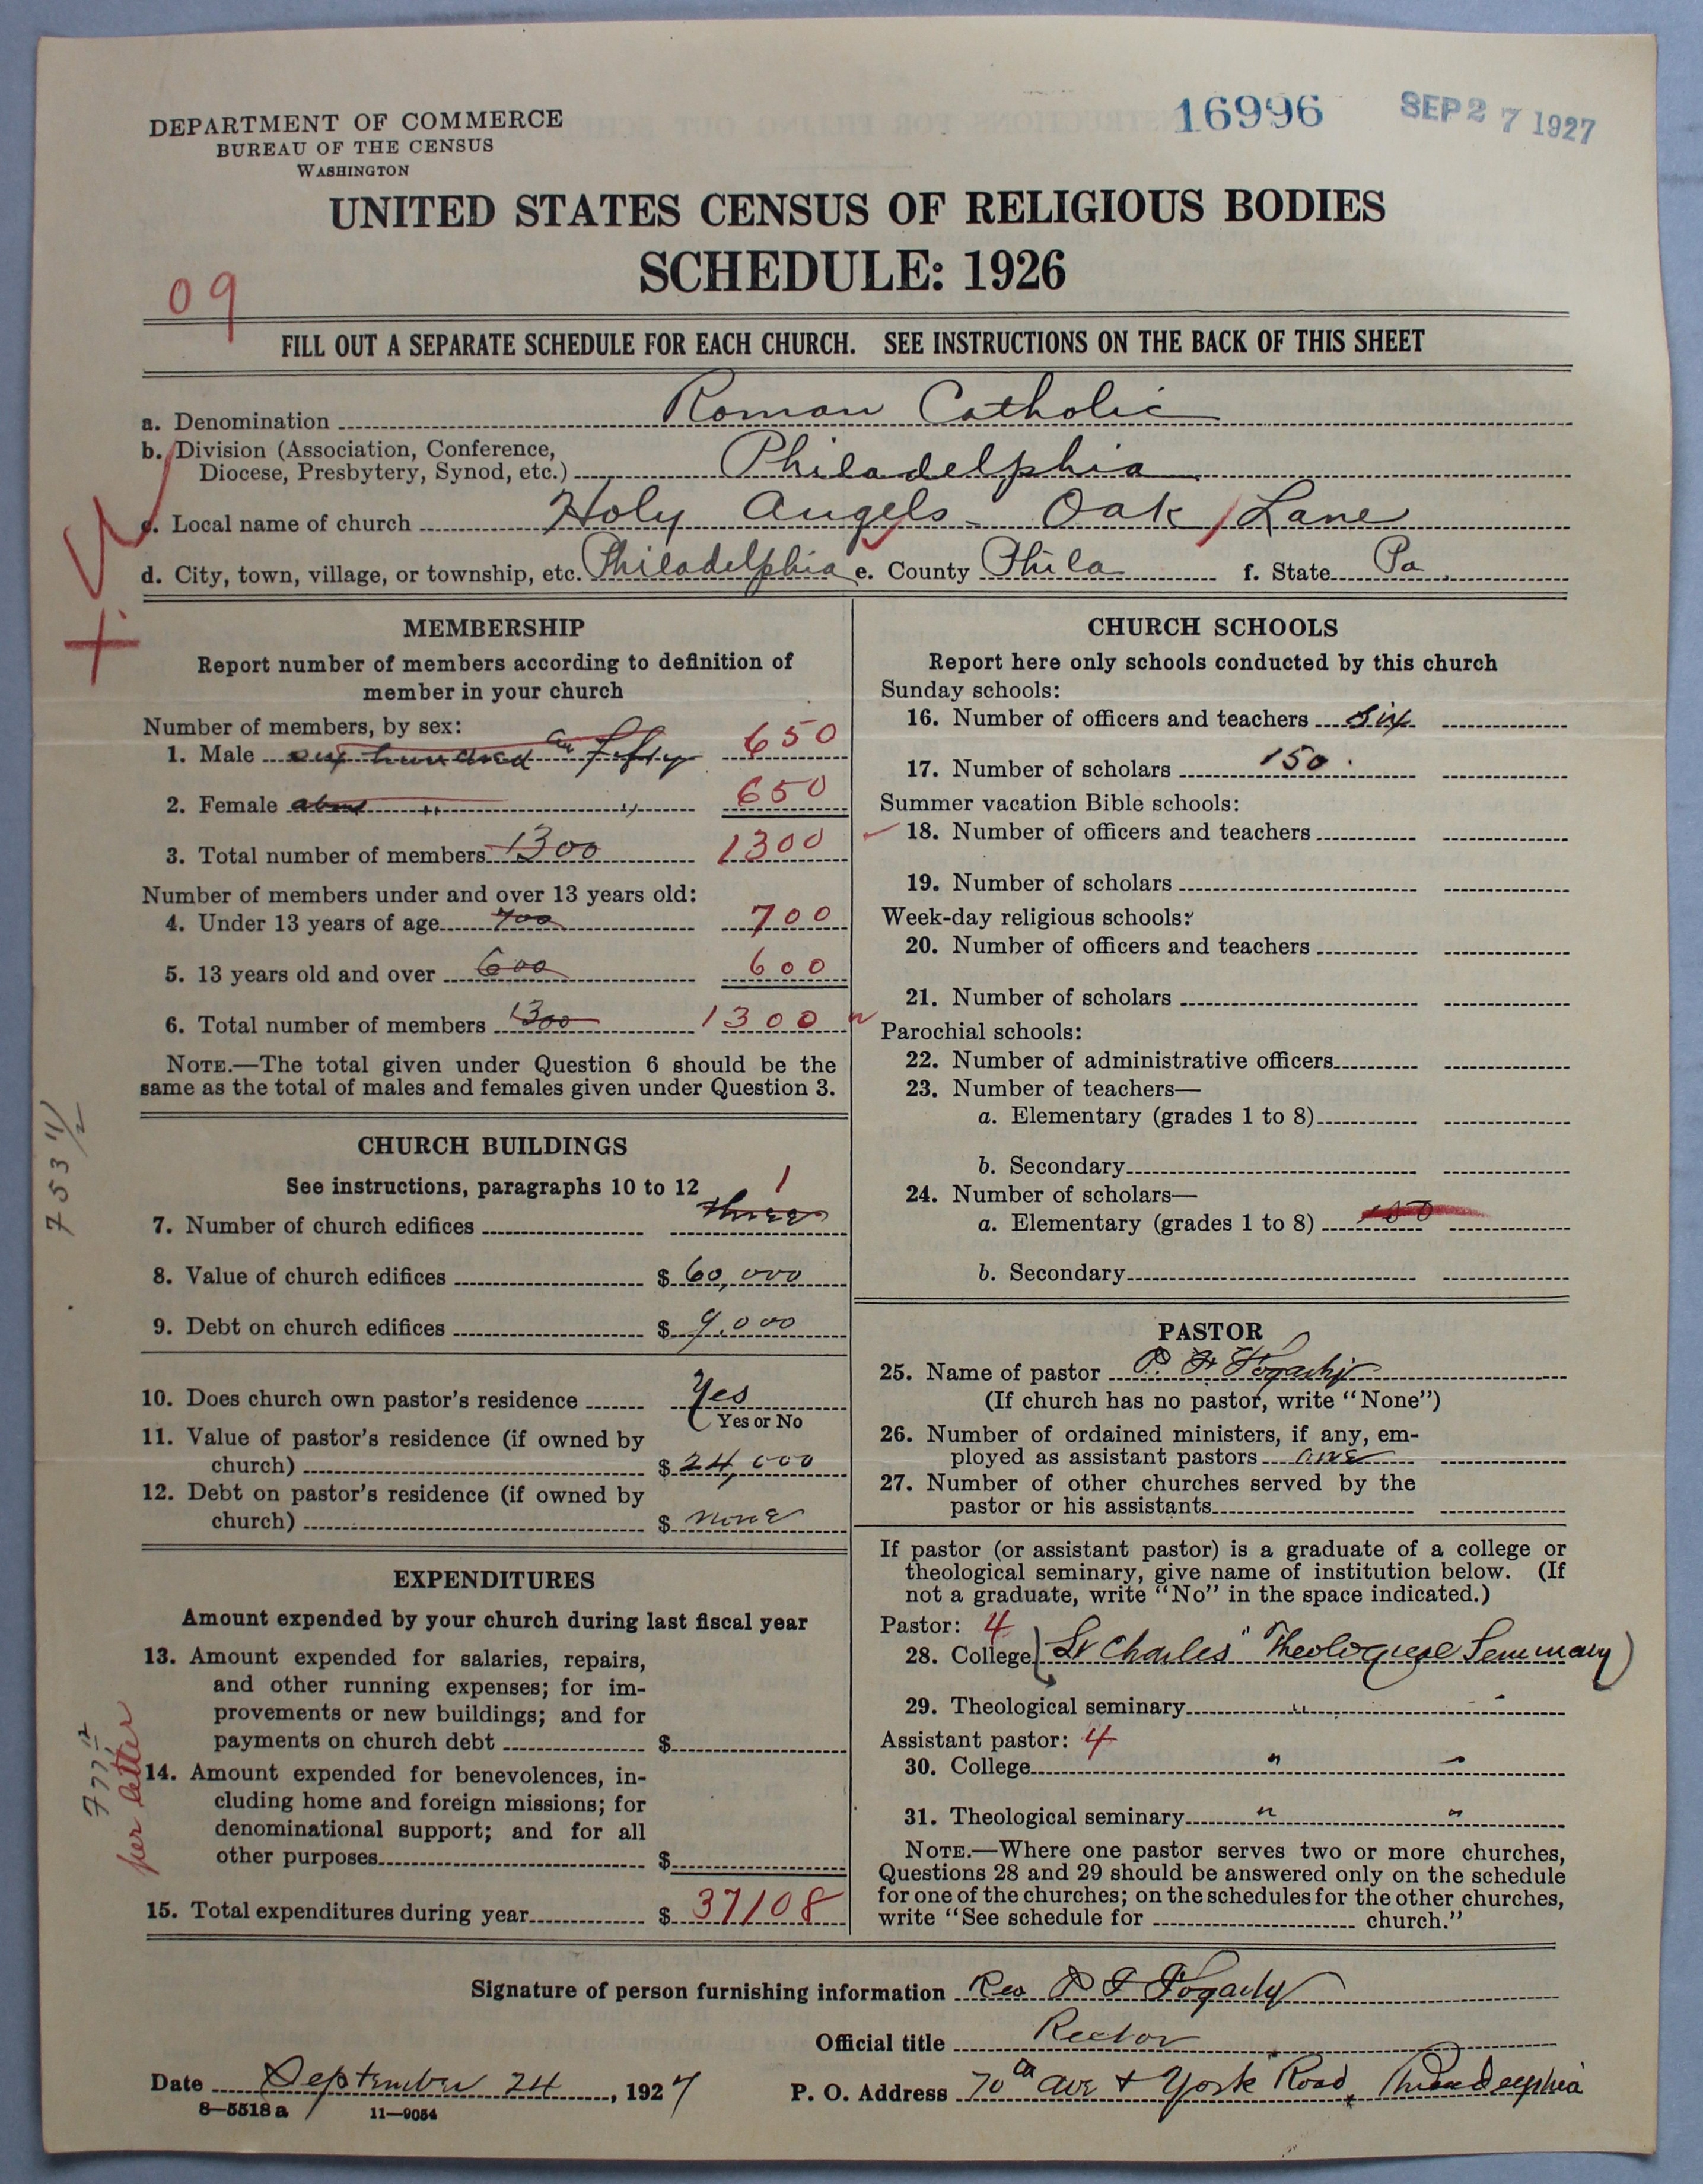 16996 SEP 27 1927
DEPARTMENT OF COMMERCE
BUREAU OF THE CENSUS
WASHINGTON
UNITED STATES CENSUS OF RELIGIOUS BODIES
SCHEDULE: 1926
09
FILL OUT A SEPARATE SCHEDULE FOR EACH CHURCH. SEE INSTRUCTIONS ON THE BACK OF THIS SHEET
a. Denomination Roman Catholic
b. Division (Association, Conference,
Diocese, Presbytery, Synod, etc.) Philadelphia
c. Local name of church Holy Angels - Oak Lane
d. City, town, village, or township, etc. Philadelphia e. County Phila f. State Pa.
MEMBERSHIP
Report number of members according to definition of
member in your church
Number of members, by sex:
1. Male six hundred fifty 650
2. Female about " " 650
3. Total number of members 1300 1300
Number of members under and over 13 years old:
4. Under 13 years of age 700 700
5. 13 years old and over 600 600
6. Total number of members 1300 1300
NOTE.—The total given under Question 6 should be the
same as the total of males and females given under Question 3.
CHURCH BUILDINGS
See instructions, paragraphs 10 to 12
1
7. Number of church edifices three
8. Value of church edifices $ 60,000
9. Debt on church edifices $ 9,000
10. Does church own pastor's residence Yes
Yes or No
11. Value of pastor's residence (if owned by
church) $ 24,000
12. Debt on pastor's residence (if owned by
church) $ none
EXPENDITURES
Amount expended by your church during last fiscal year
13. Amount expended for salaries, repairs,
and other running expenses; for im-
provements or new buildings; and for
payments on church debt $
14. Amount expended for benevolences, in-
cluding home and foreign missions; for
denominational support; and for all
other purposes $
15. Total expenditures during year $ 37108
per letter
CHURCH SCHOOLS
Report here only schools conducted by this church
Sunday schools:
16. Number of officers and teachers six
17. Number of scholars 150
Summer vacation Bible schools:
18. Number of officers and teachers
19. Number of scholars
Week-day religious schools:
20. Number of officers and teachers
21. Number of scholars
Parochial schools:
22. Number of administrative officers
23. Number of teachers—
a. Elementary (grades 1 to 8)
b. Secondary
24. Number of scholars—
a. Elementary (grades 1 to 8) 150
b. Secondary
PASTOR
25. Name of pastor P. F. Fogarty
(If church has no pastor, write "None")
26. Number of ordained ministers, if any, em-
ployed as assistant pastors one
27. Number of other churches served by the
pastor or his assistants
If pastor (or assistant pastor) is a graduate of a college or
theological seminary, give name of institution below. (If
not a graduate, write "No" in the space indicated.)
Pastor: 4
28. College St Charles' Theologicae Seminary
29. Theological seminary " "
Assistant pastor: 4
30. College " "
31. Theological seminary " "
NOTE.—Where one pastor serves two or more churches,
Questions 28 and 29 should be answered only on the schedule
for one of the churches; on the schedules for the other churches,
write "See schedule for church."
Signature of person furnishing information Rev P F Fogarty
Official title Rector
Date September 24, 1927 P. O. Address 70th ave & York Road, Philadelphia
8—5518a 11—9054